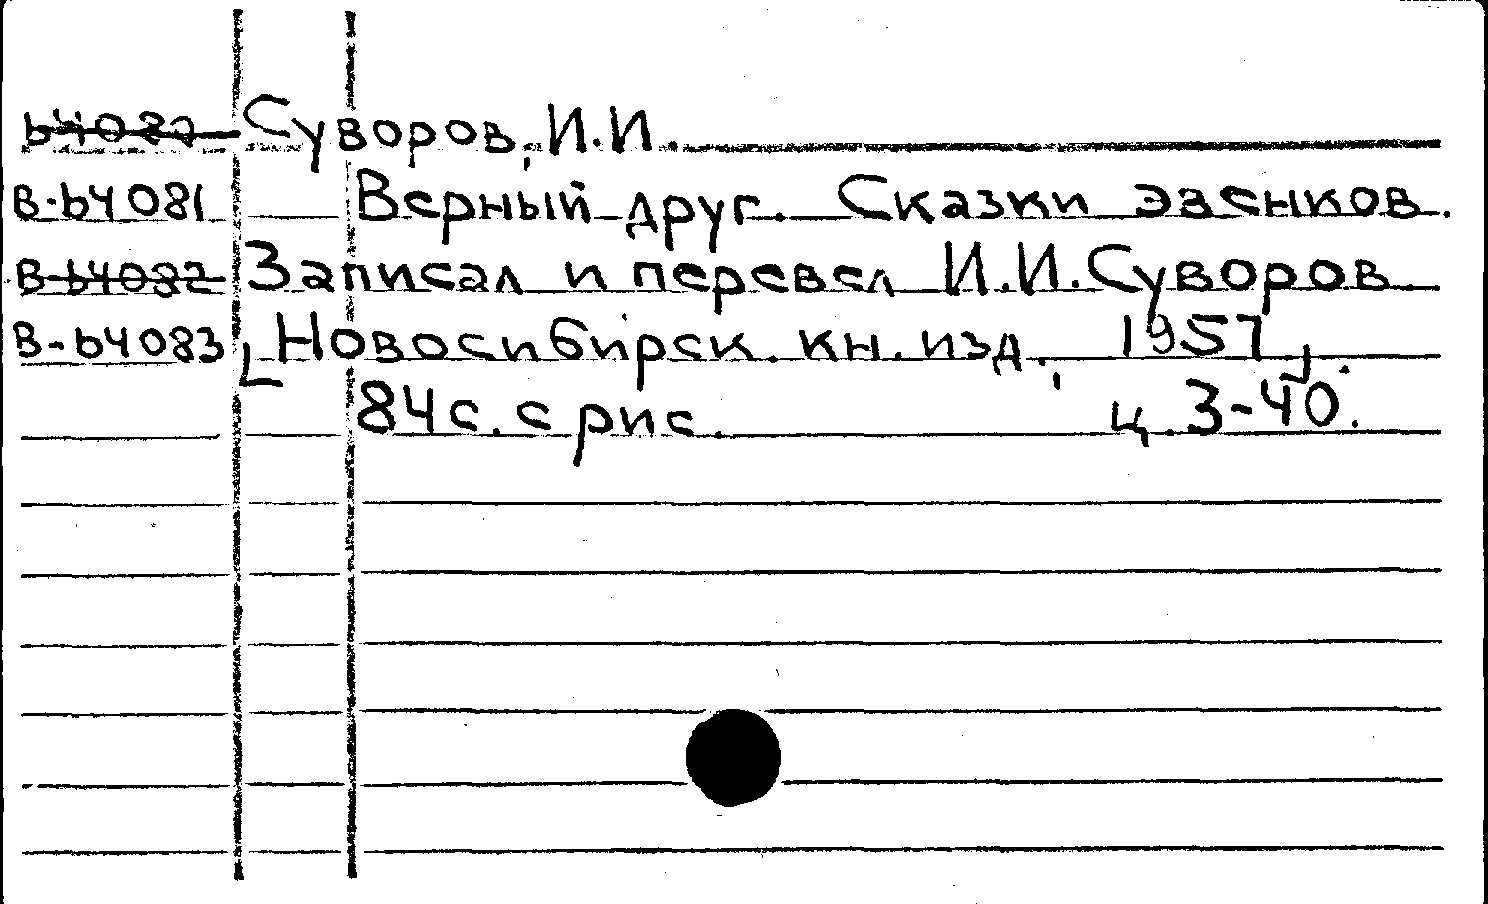 ь4082 Суворов, И.И.
В-ь4081 Верный друг. Сказки эвенков.
В-ь4082 Записал и перевел И.И. Суворов.
В-ь4083 [Новосибирск. кн. изд., 1957].
84с. с рис. ц. 3-40.